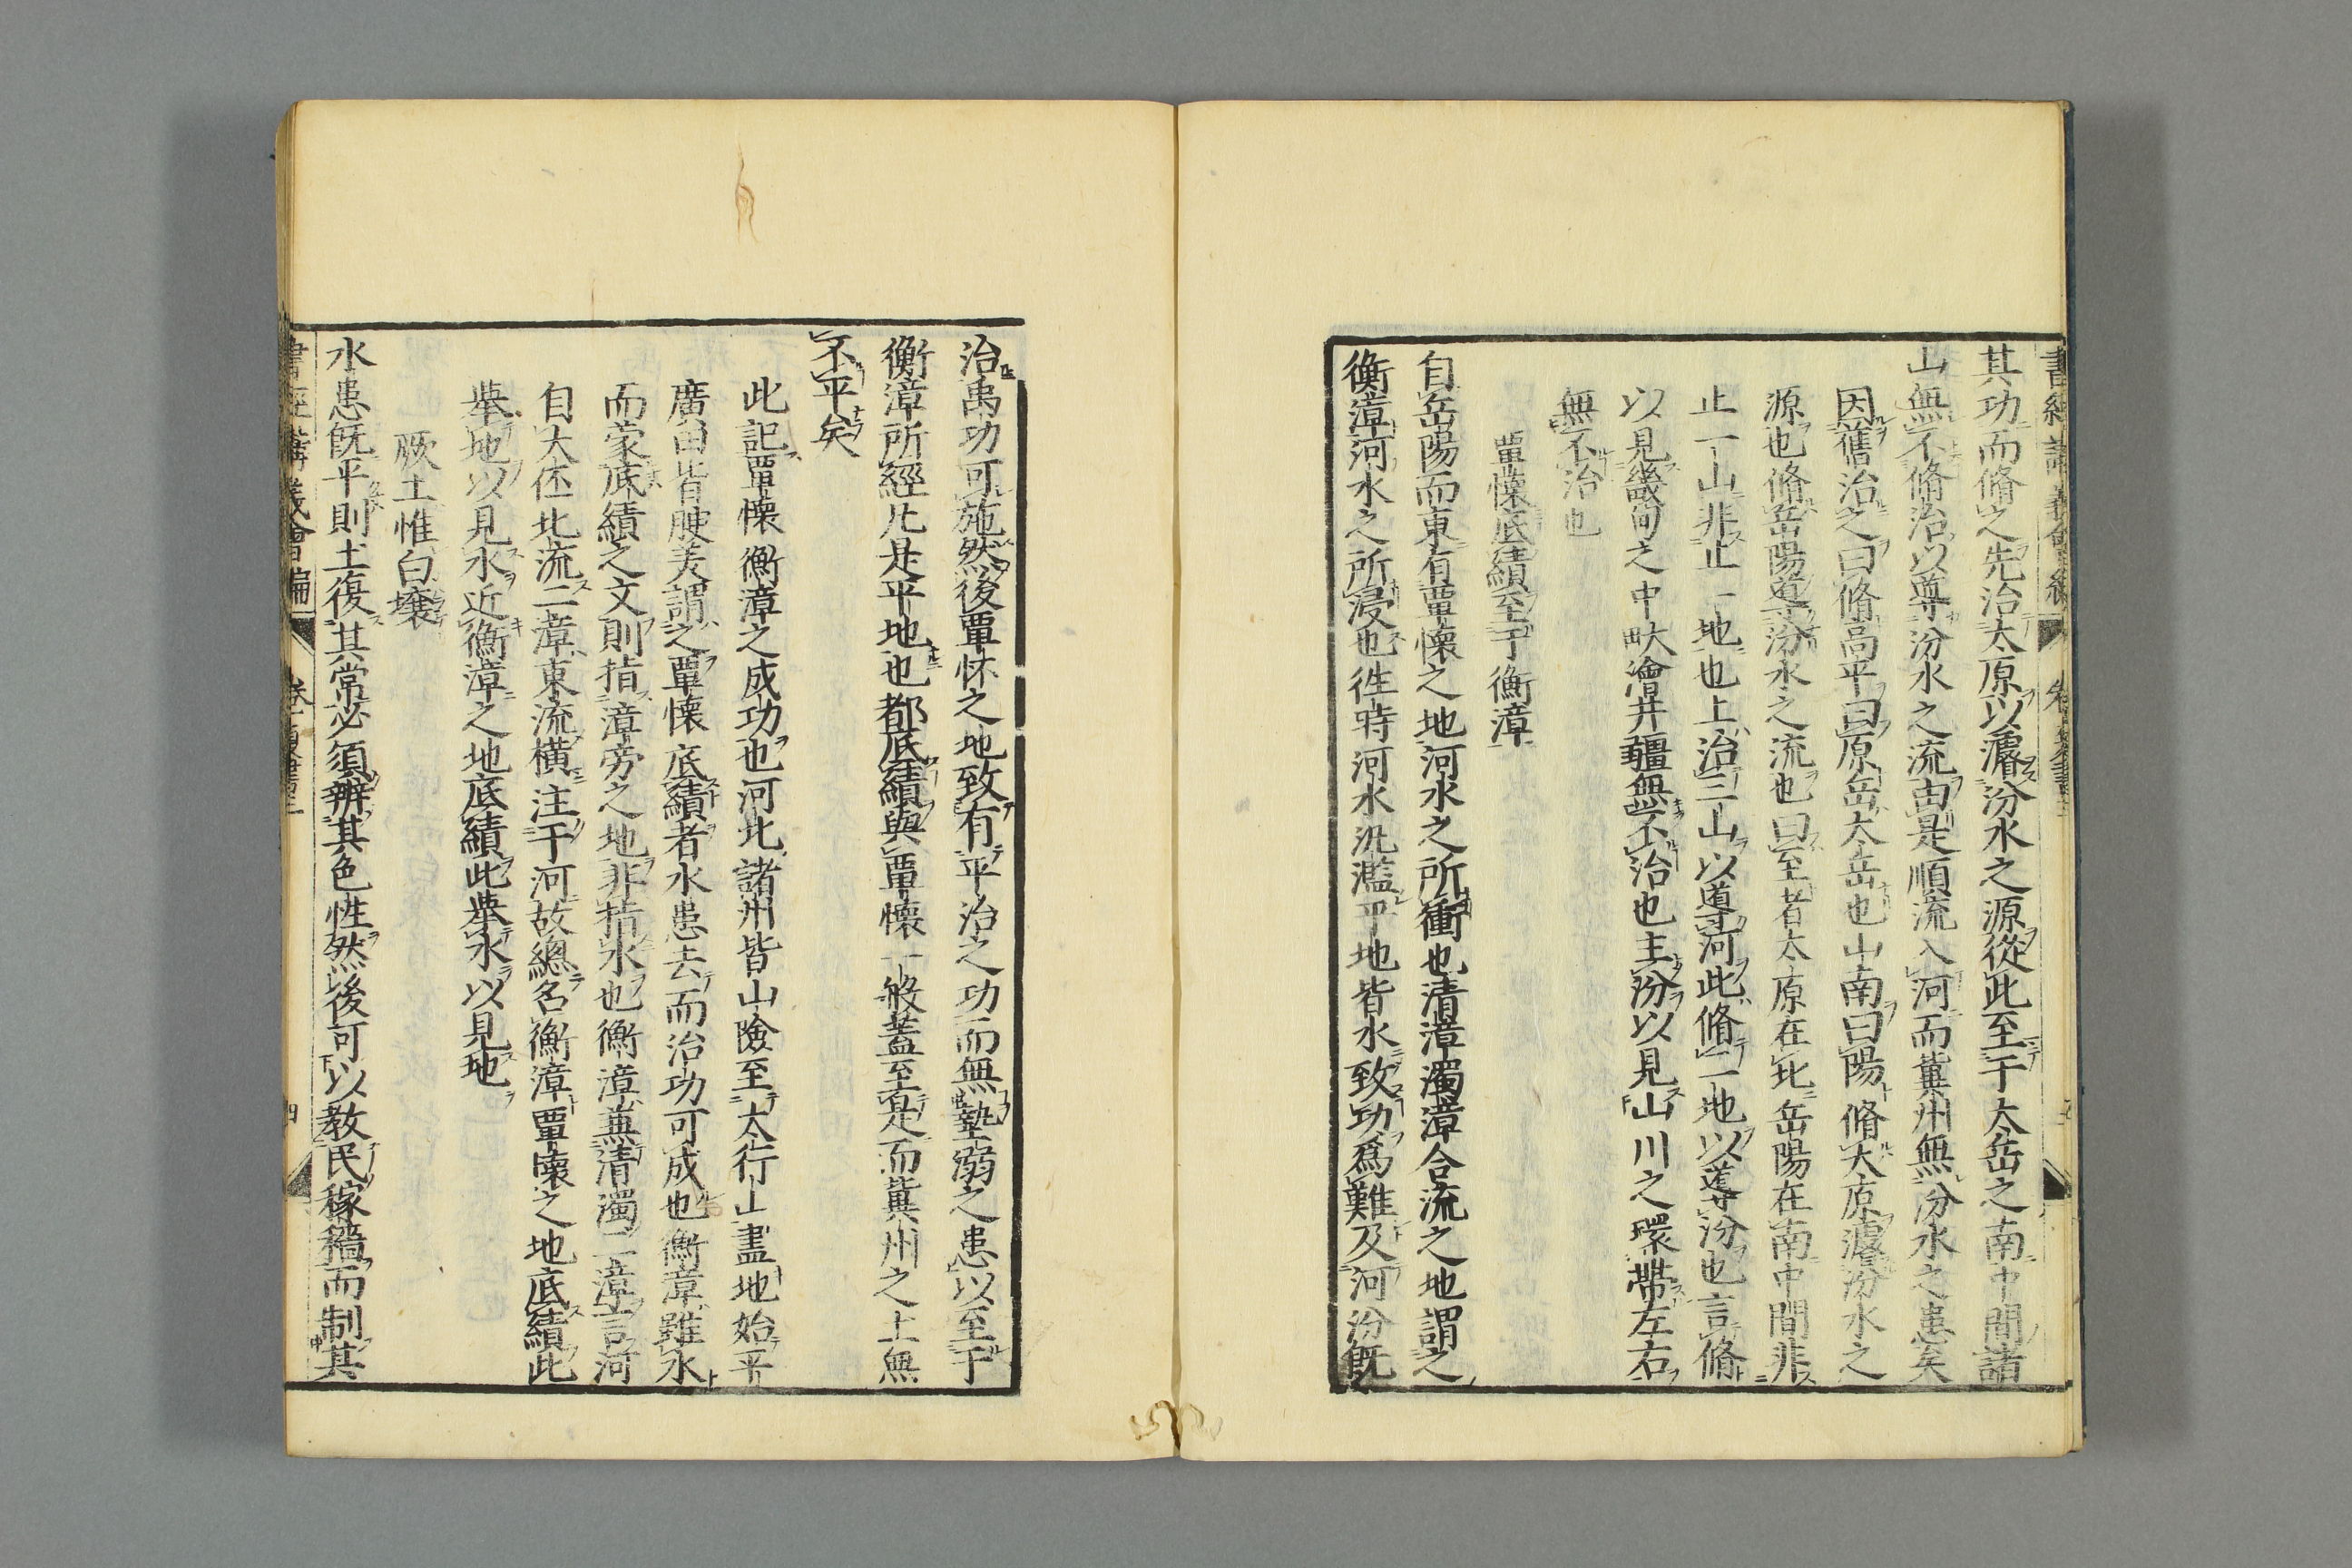 其功而脩之先治太原以濬汾水之源從此至于太岳之南中間諸
山無不脩治以導汾水之流由是順流入河而冀州無汾水之患矣
因舊治之曰脩高平曰原岳太岳也山南曰陽脩太原濬汾水之
源也脩岳陽導汾水之流也曰至者太原在北岳陽在南中間非
止一山非止一地也上治三山以導河此脩二地以導汾也言脩
以見畿甸之中畎澮井疆無不治也主汾以見山川之環帶左右
無不治也
覃懷底績至于衡漳
自岳陽而東有覃懷之地河水之所衝也清漳濁漳合流之地謂之
衡漳河水之所浸也徃時河水汎濫平地皆水致功爲難及河汾既
治禹功可施然後覃怀之地致有平治之功而無墊溺之患以至于
衡漳所經凡是平地也都底績與覃懷一般蓋至是而冀州之土無
不平矣
此記覃懷衡漳之成功也河北諸州皆山險至太行山盡地始平
廣田皆腴美謂之覃懷底績者水患去而治功可成也衡漳雖水
而蒙底績之文則指漳旁之地非指水也衡漳兼清濁二漳言河
自大伾北流二漳東流橫注于河故總名衡漳覃懷之地底績此
擧地以見水近衡漳之地底績此擧水以見地
厥土惟白壤
水患既平則土復其常必須辨其色性然後可以教民稼穡而制其
書經講義會編
四